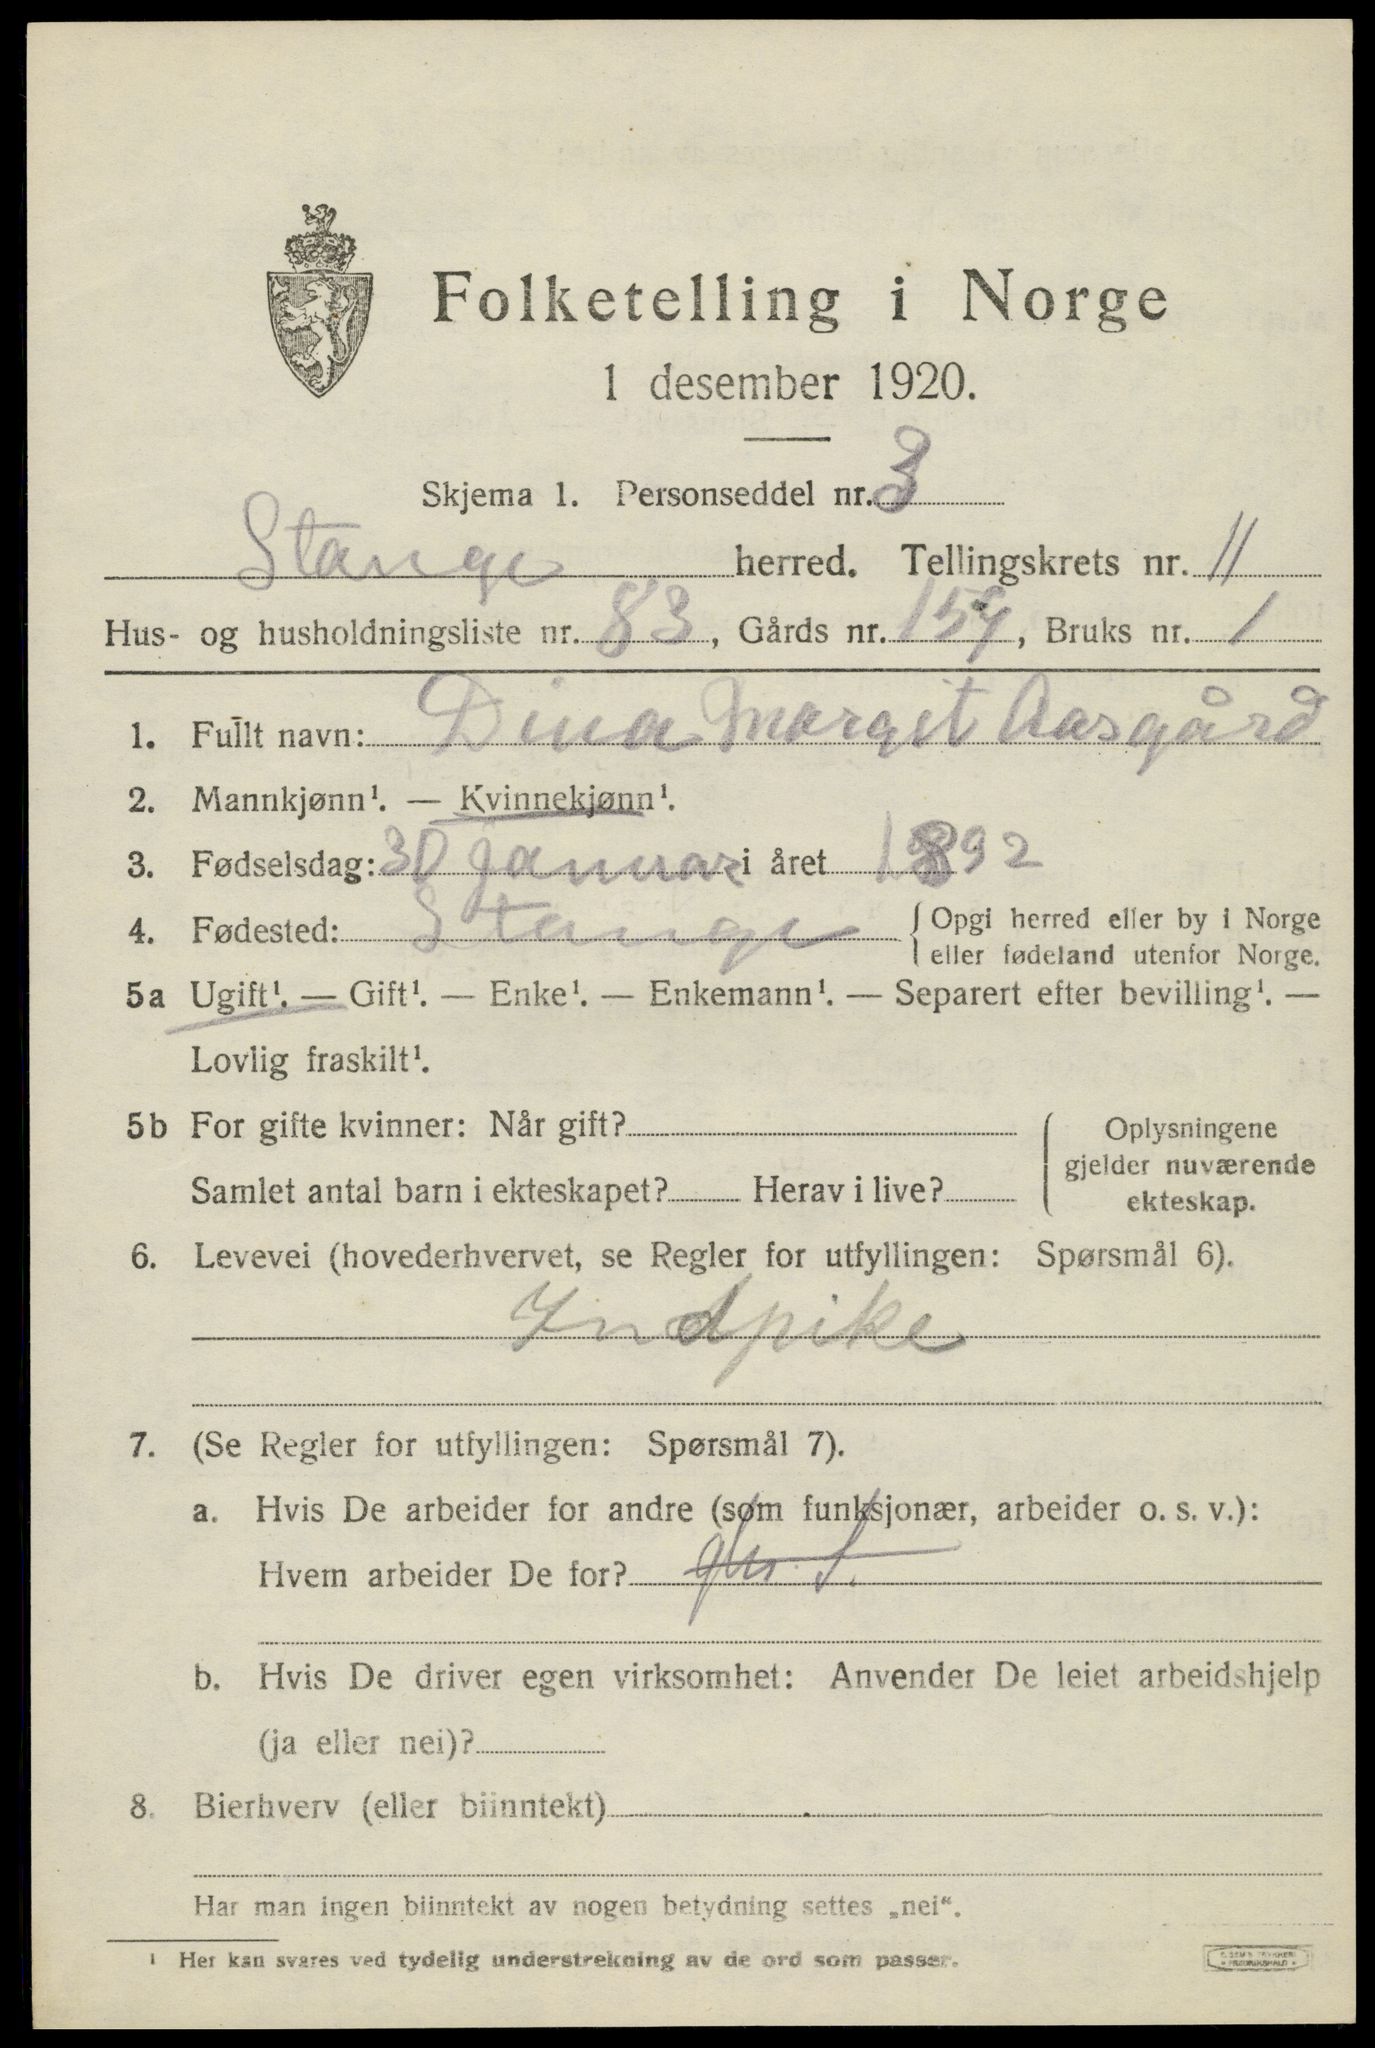 Folketelling i Norge
1 desember 1920.
Skjema 1. Personseddel nr. 3
Stange herred. Tellingskrets nr. 11
Hus- og husholdningsliste nr. 83, Gårds nr. 159, Bruks nr. 1
1. Fullt navn: Dina Margit Aasgård
2. Mannkjønn¹. — Kvinnekjønn¹.
3. Fødselsdag: 30 Januar i året 1892
4. Fødested: Stange { Opgi herred eller by i Norge
eller fødeland utenfor Norge.
5a Ugift¹. — Gift¹. — Enke¹. — Enkemann¹. — Separert efter bevilling¹. —
Lovlig fraskilt¹.
5b For gifte kvinner: Når gift? { Oplysningene
gjelder nuværende
Samlet antal barn i ekteskapet? Herav i live? ekteskap.
6. Levevei (hovederhvervet, se Regler for utfyllingen: Spørsmål 6).
Indpike
7. (Se Regler for utfyllingen: Spørsmål 7).
a. Hvis De arbeider for andre (som funksjonær, arbeider o. s. v.):
Hvem arbeider De for?
b. Hvis De driver egen virksomhet: Anvender De leiet arbeidshjelp
(ja eller nei)?
8. Bierhverv (eller biinntekt)
Har man ingen biinntekt av nogen betydning settes „nei“.
¹ Her kan svares ved tydelig understrekning av de ord som passer.